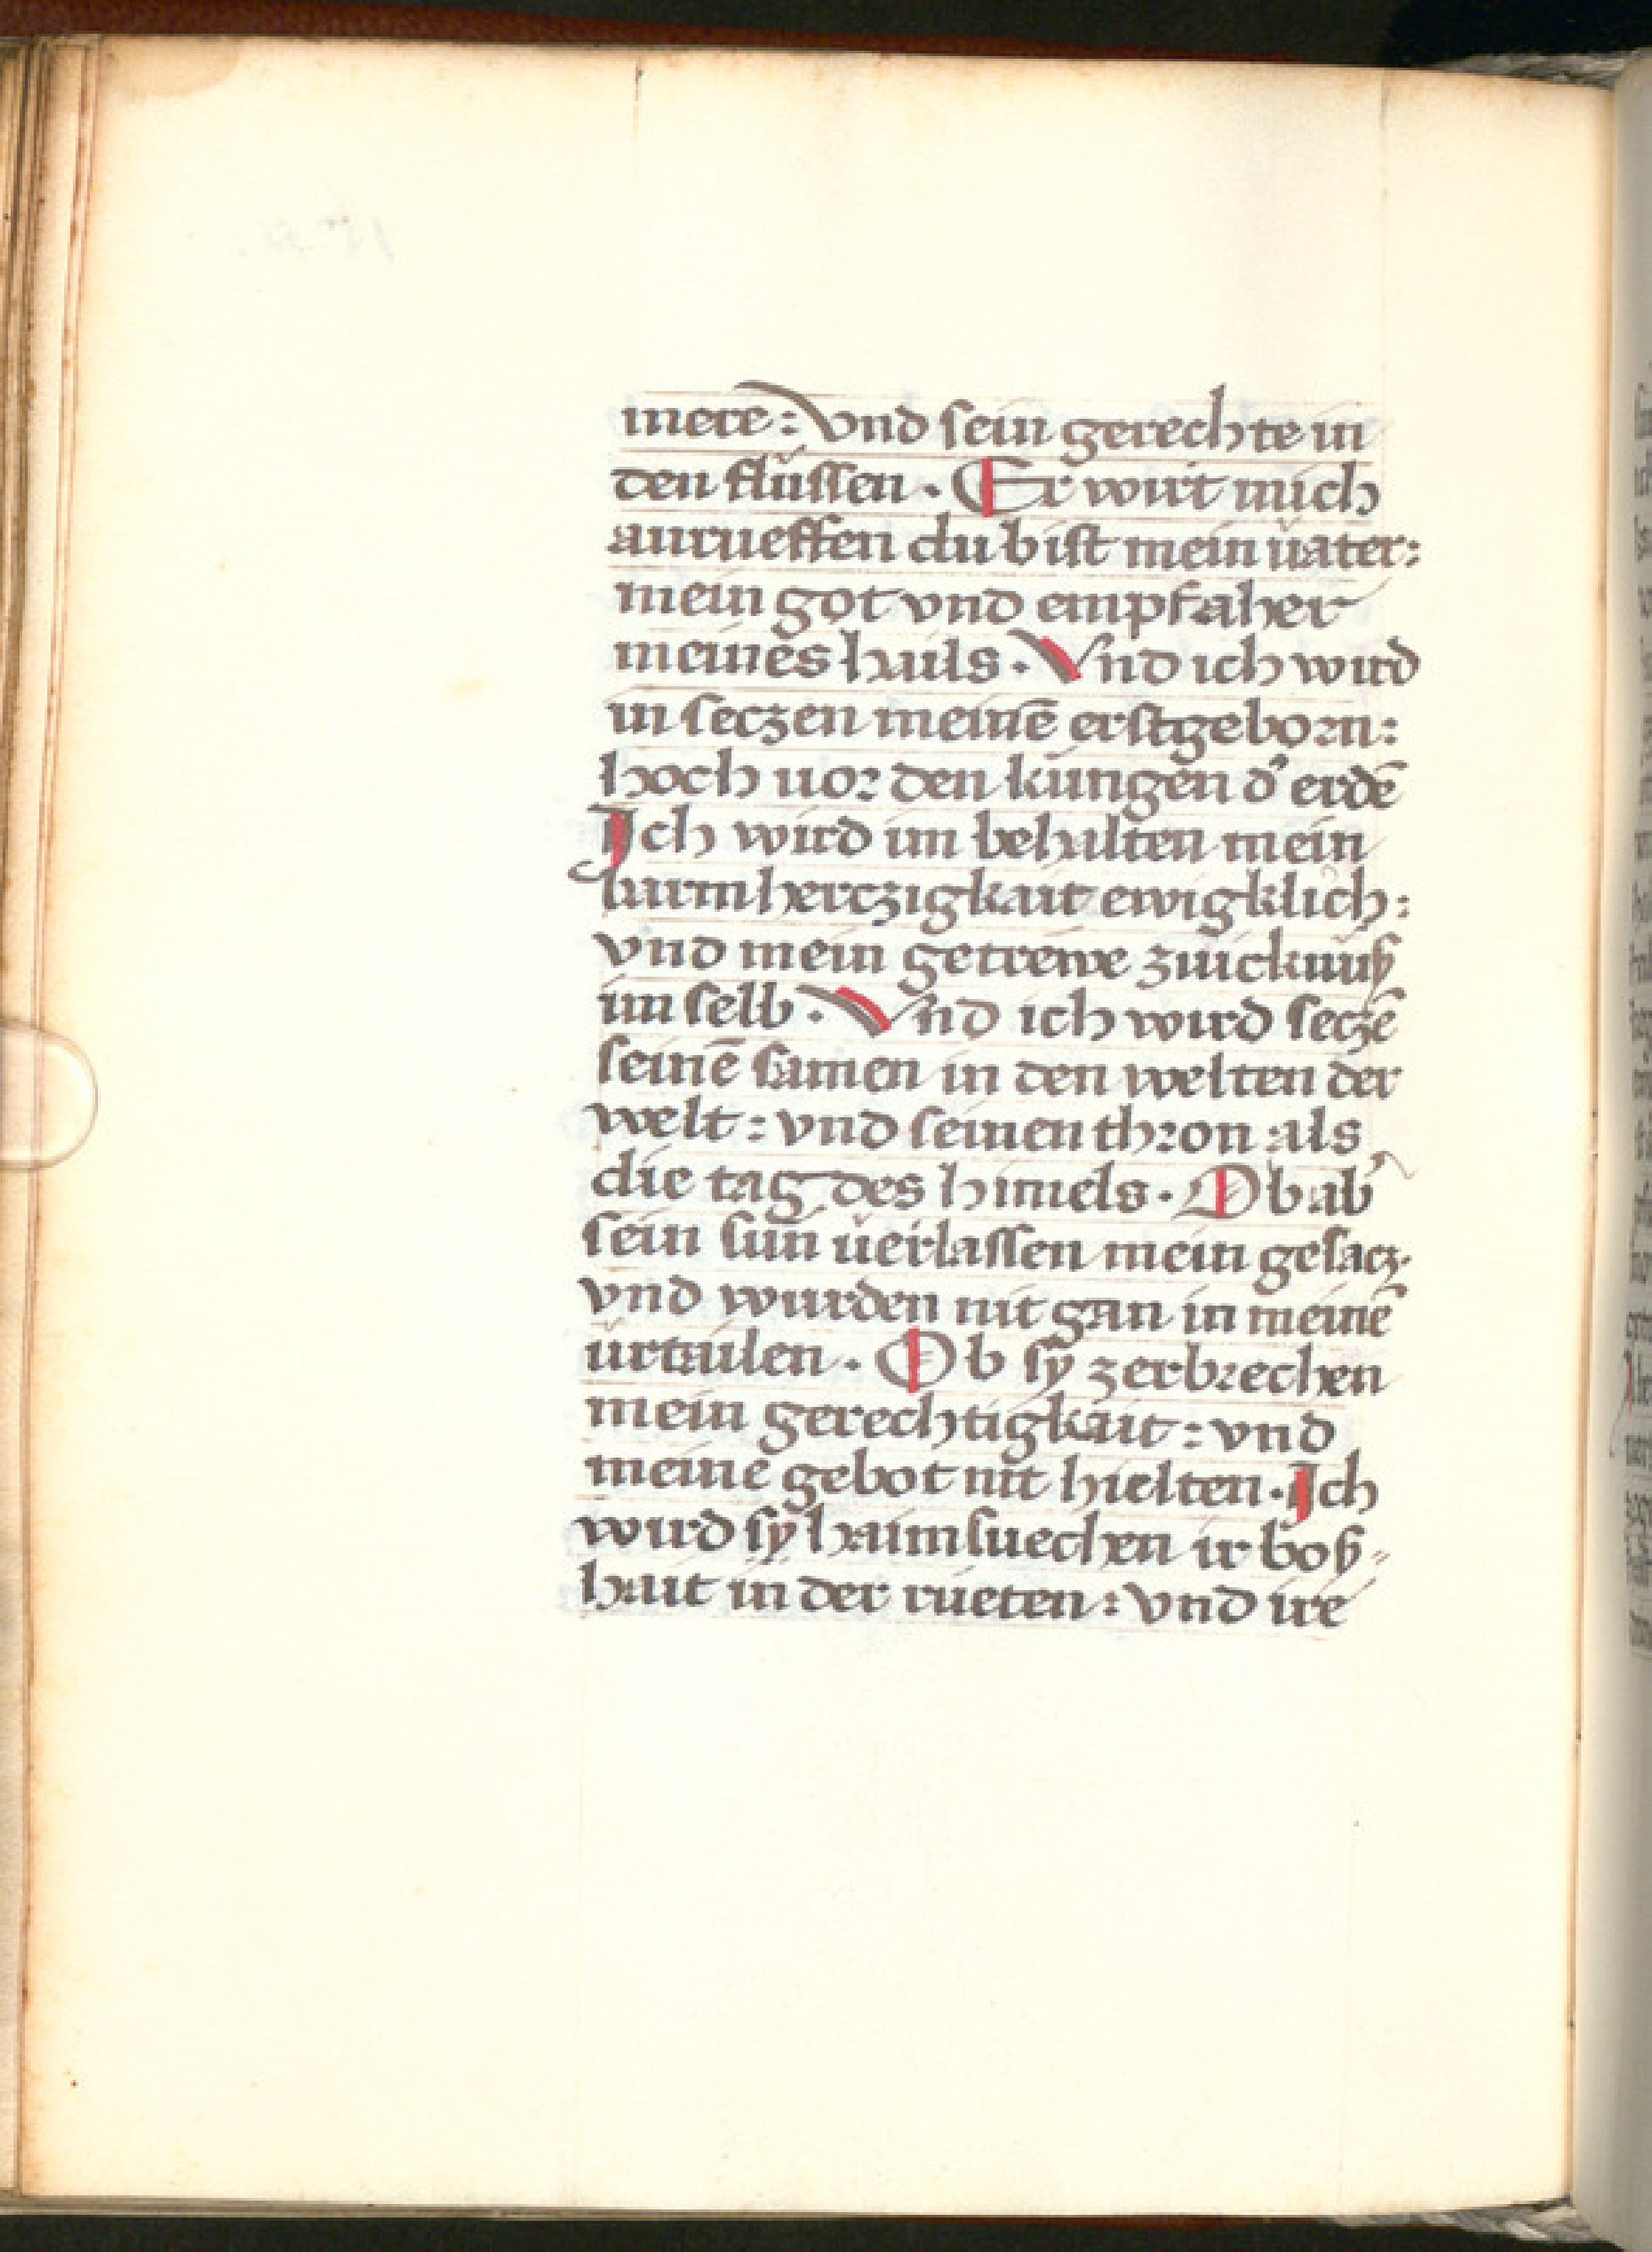 mere: vnd sein gerechte in
den flüssen. Er wirt mich
anrueffen du bist mein vater:
mein got vnd empfaher
meines hails. Vnd ich wird
in seczen meinē erstgeborn:
hoch uor den kungen d' erdē
Ich wird im behalten mein
barmherczigkait ewigklich:
vnd mein getrewe züicknuß
im selb. Vnd ich wird seczē
seinē samen in den welten der
welt: vnd seinen thron als
die tag des himels. Ob ab'
sein sün üerlassen mein gesacz.
vnd wurden nit gan in meinē
ürtailen. Ob sÿ zerbrechen
mein gerechtigkait: vnd
meine gebot nit hielten. Ich
wird sÿ haimsuechen ir boß-
hait in der rueten: vnd ire